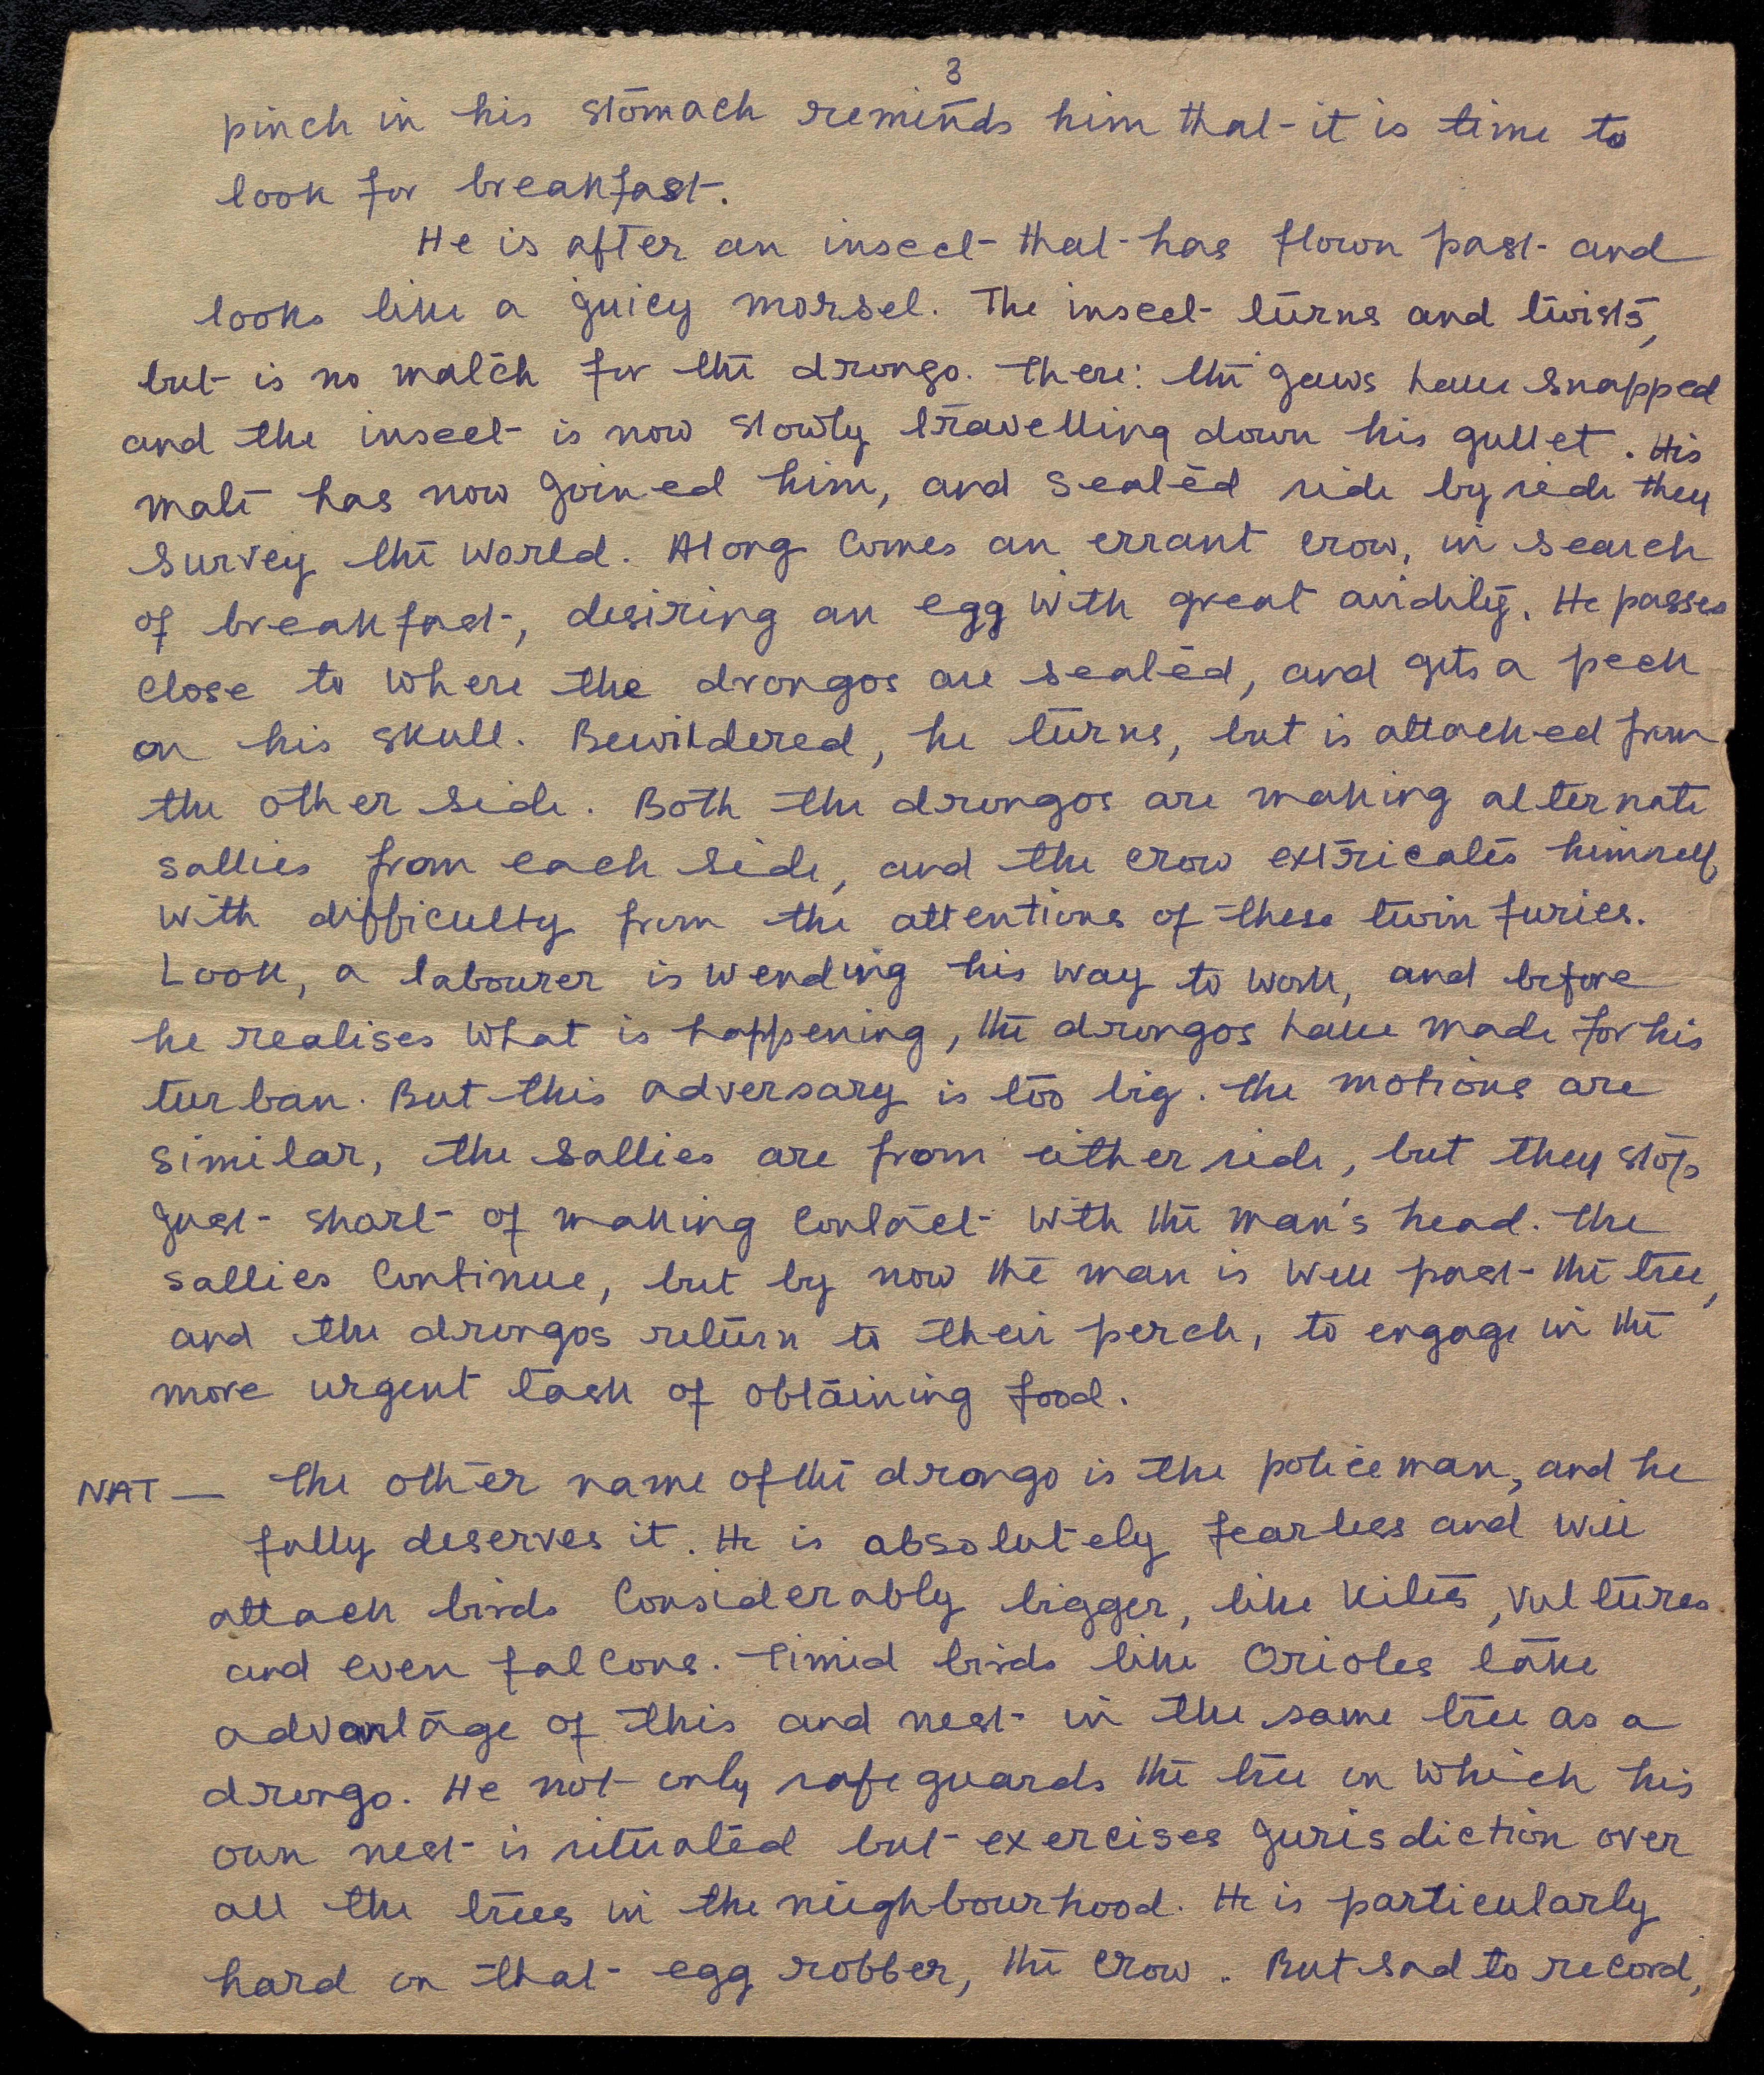 3
pinch in his stomach reminds him that it is time to
look for breakfast.
He is after an insect that has flown past and
looks like a juicy morsel. The insect turns and twists,
but is no match for the drongo. There: the jaws have snapped
and the insect is now slowly travelling down his gullet. His
mate has now joined him, and seated side by side they
survey the world. Along comes an errant crow, in search
of breakfast, desiring an egg with great avidity. He passes
close to where the drongos are seated, and gets a peck
on his skull. Bewildered, he turns, but is attacked from
the other side. Both the drongos are making alternate
sallies from each side, and the crow extricates himself
with difficulty from the attentions of these twin furies.
Look, a labourer is wending his way to work, and before
he realises what is happening, the drongos have made for his
turban. But this adversary is too big. The motions are
similar, the sallies are from either side, but they stop
just short of making contact with the man's head. The
sallies continue, but by now the man is well past the tree,
and the drongos return to their perch, to engage in the
more urgent task of obtaining food.
NAT — The other name of the drongo is the policeman, and he
fully deserves it. He is absolutely fearless and will
attack birds considerably bigger, like kites, vultures
and even falcons. Timid birds like Orioles take
advantage of this and nest in the same tree as a
drongo. He not only safeguards the tree on which his
own nest is situated but exercises jurisdiction over
all the trees in the neighbourhood. He is particularly
hard on that egg robber, the crow. But sad to record,